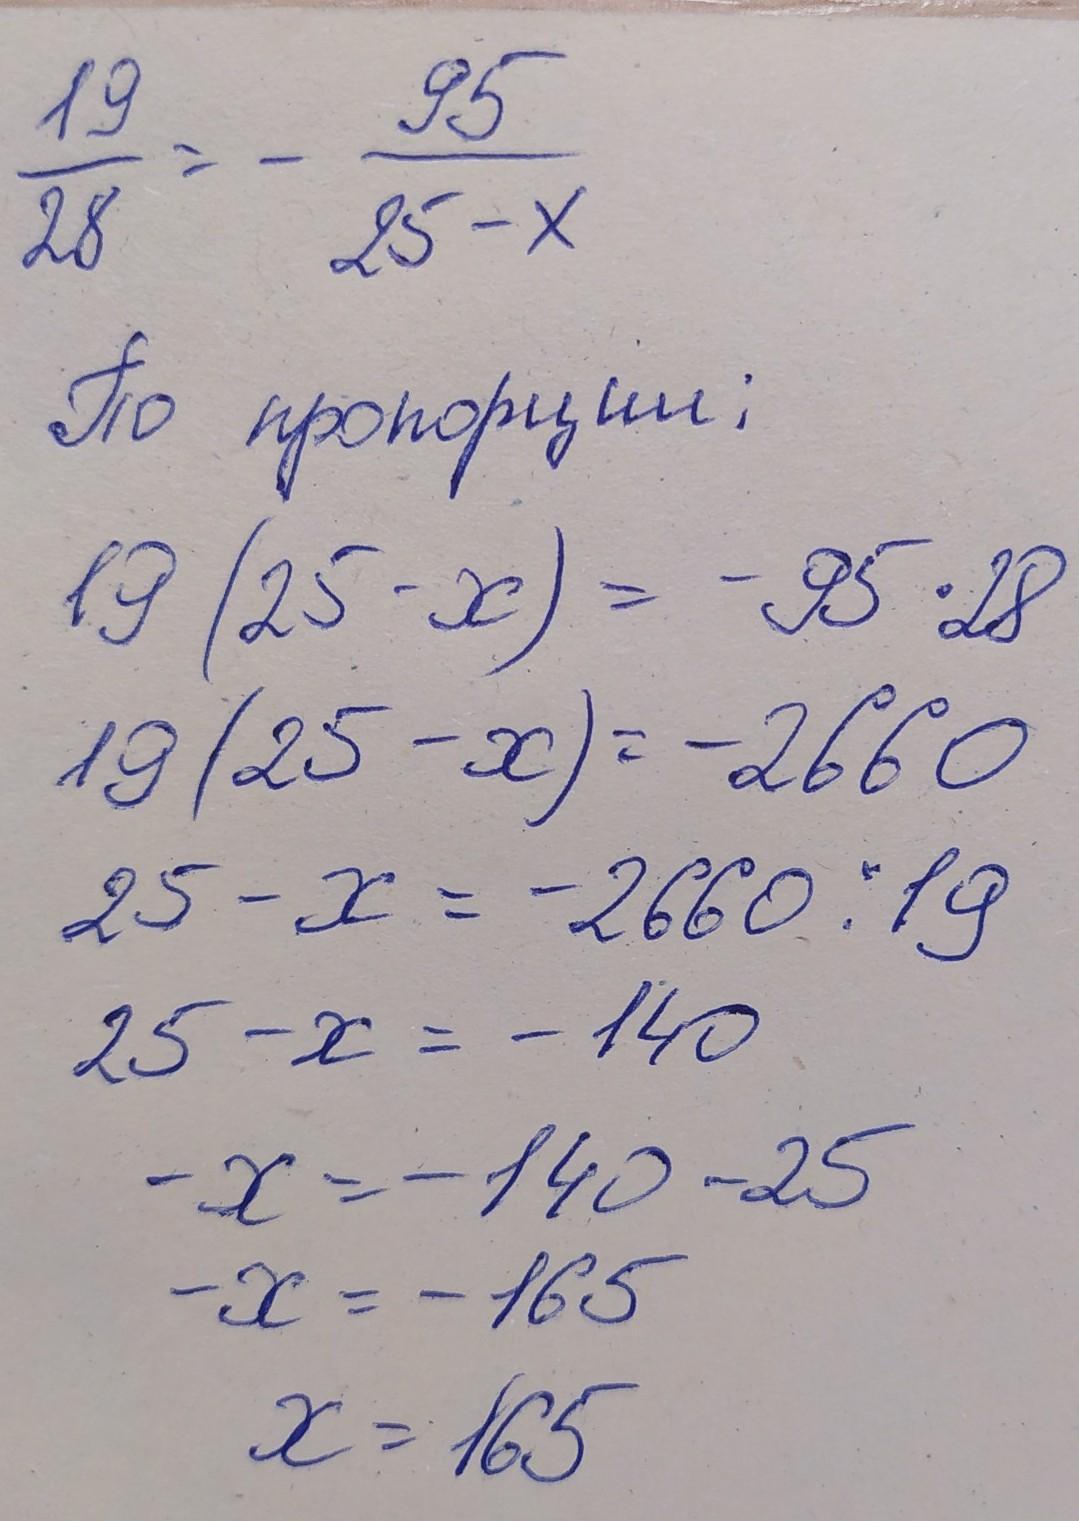 19/28 = - 95/(25 - x)
По пропорции:
19 (25 - x) = -95 · 28
19 (25 - x) = -2660
25 - x = -2660 : 19
25 - x = - 140
-x = - 140 - 25
-x = - 165
x = 165